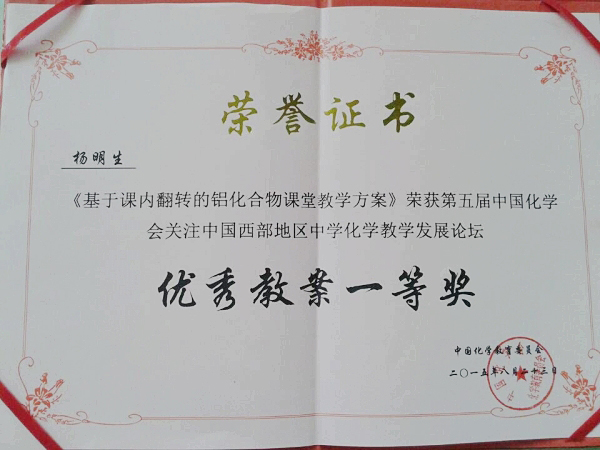 荣誉证书
杨明生
《基于课内翻转的铝化合物课堂教学方案》荣获第五届中国化学
会关注中国西部地区中学化学教学发展论坛
优秀教案一等奖
中国化学教育委员会
二〇一五年八月二十三日